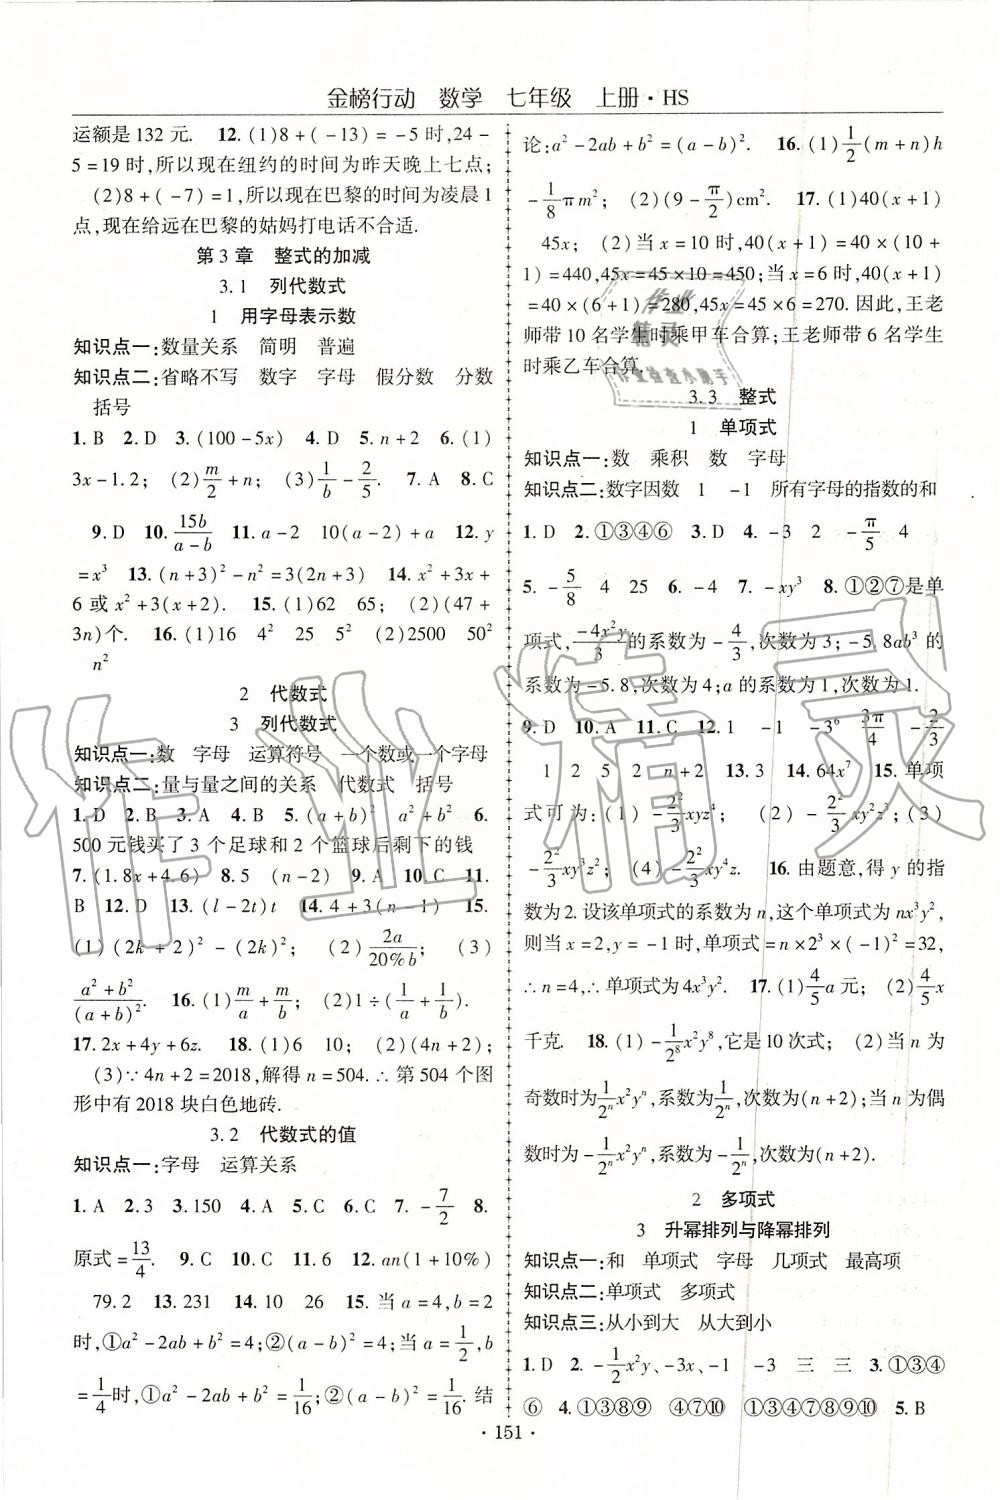 金榜行动 数学 七年级 上册·HS
运额是 132 元. 12. (1)8+(-13)=-5 时,24-
5=19 时,所以现在纽约的时间为昨天晚上七点;
(2)8+(-7)=1,所以现在巴黎的时间为凌晨 1
点,现在给远在巴黎的姑妈打电话不合适.
第 3 章 整式的加减
3.1 列代数式
1 用字母表示数
知识点一:数量关系 简明 普遍
知识点二:省略不写 数字 字母 假分数 分数
括号
1. B 2. D 3. (100-5x) 4. D 5. n+2 6. (1)
3x-1.2; (2) m/2+n; (3) 1/b-2/5. 7. A 8. C
9. D 10. 15b/(a-b) 11. a-2 10(a-2)+a 12. y
=x³ 13. (n+3)²-n²=3(2n+3) 14. x²+3x+
6 或 x²+3(x+2). 15. (1)62 65; (2)(47+
3n)个. 16. (1)16 4² 25 5² (2)2500 50²
n²
2 代数式
3 列代数式
知识点一:数 字母 运算符号 一个数或一个字母
知识点二:量与量之间的关系 代数式 括号
1. D 2. B 3. A 4. B 5. (a+b)² a²+b² 6.
500 元钱买了 3 个足球和 2 个篮球后剩下的钱
7. (1.8x+4.6) 8. 5 (n-2) 9. A 10. C 11.
B 12. D 13. (l-2t)t 14. 4+3(n-1) 15.
(1)(2k+2)²-(2k)²; (2) 2a/20%b; (3)
(a²+b²)/(a+b)². 16. (1) m/a+m/b; (2)1÷(1/a+1/b).
17. 2x+4y+6z. 18. (1)6 10; (2)(4n+2);
(3)∵4n+2=2018,解得 n=504. ∴第 504 个图
形中有 2018 块白色地砖.
3.2 代数式的值
知识点一:字母 运算关系
1. A 2. 3 3. 150 4. A 5. C 6. C 7. -7/2 8.
原式=13/4. 9. C 10. C 11. 6 12. an(1+10%)
79.2 13. 231 14. 10 26 15. 当 a=4,b=2
时,①a²-2ab+b²=4;②(a-b)²=4;当 a=1/2,b
=1/4时,①a²-2ab+b²=1/16;②(a-b)²=1/16. 结
论:a²-2ab+b²=(a-b)². 16. (1) 1/2(m+n)h
-1/8πm²; (2)(9-π/2)cm². 17. (1)40(x+1)
45x; (2)当 x=10 时,40(x+1)=40×(10+1)
=440,45x=45×10=450;当 x=6 时,40(x+1)
=40×(6+1)=280,45x=45×6=270. 因此,王老
师带 10 名学生时乘甲车合算;王老师带 6 名学生
时乘乙车合算.
3.3 整式
1 单项式
知识点一:数 乘积 数 字母
知识点二:数字因数 1 -1 所有字母的指数的和
1. D 2. ①③④⑥ 3. D 4. -3 2 -π/5 4
5. -5/8 4 25 6. -4 7. -xy³ 8. ①②⑦是单
项式,-4x²y/3的系数为-4/3,次数为3;-5.8ab³的
系数为-5.8,次数为4;a的系数为1,次数为1.
9. D 10. A 11. C 12. 1 -1 -3⁶ 3π/4 -2/3
1 2 5 2 n+2 13. 3 14. 64x⁷ 15. 单项
式可为:(1)-2/3xyz⁴; (2)-2/3xy²z³; (3)
-2/3xy³z²; (4)-2/3xy⁴z. 16. 由题意,得 y 的指
数为2. 设该单项式的系数为 n,这个单项式为 nx³y²,
则当 x=2,y=-1 时,单项式=n×2³×(-1)²=32,
∴n=4,∴单项式为4x³y². 17. (1) 4/5a 元; (2) 4/5x
千克. 18. (1)-1/2⁸x²y⁸,它是 10 次式; (2)当 n 为
奇数时为1/2ⁿx²yⁿ,系数为1/2ⁿ,次数为(n+2);当 n 为偶
数时为-1/2ⁿx²yⁿ,系数为-1/2ⁿ,次数为(n+2).
2 多项式
3 升幂排列与降幂排列
知识点一:和 单项式 字母 几项式 最高项
知识点二:单项式 多项式
知识点三:从小到大 从大到小
1. D 2. -1/2x²y、-3x、-1 -3 三 三 3. ①③④
⑥ 4. ①③⑧⑨ ④⑦⑩ ①③④⑦⑧⑨⑩ 5. B
· 151 ·
作业精灵
作业
精灵
作业检查小助手